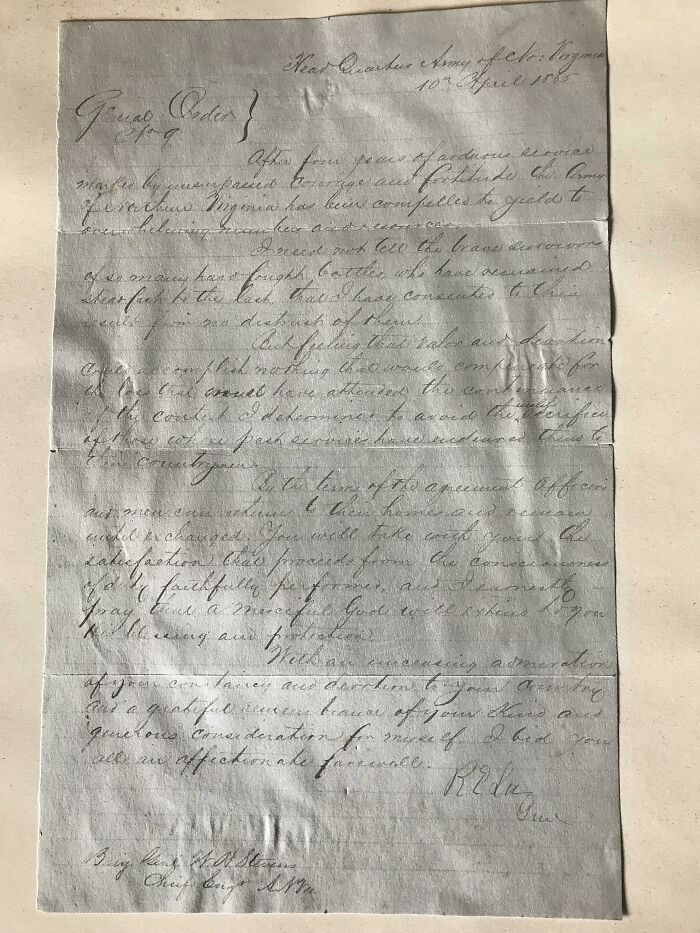 Head Quarters Army of No: Virginia
10th April 1865
General Order
No 9
After four years of arduous service
marked by unsurpassed courage and fortitude the Army
of Northern Virginia has been compelled to yield to
overwhelming numbers and resources.
I need not tell the brave survivors
of so many hard fought battles who have remained
steadfast to the last that I have consented to this
result from no distrust of them.
But feeling that valor and devotion
could accomplish nothing that would compensate for
the loss that must have attended the continuance
of the contest I determined to avoid the useless sacrifice
of those whose past services have endeared them to
their countrymen.
By the terms of the agreement officers
and men can return to their homes and remain
until exchanged. You will take with you the
satisfaction that proceeds from the consciousness
of duty faithfully performed, and I earnestly
pray that a Merciful God will extend to you
His blessing and protection
With an unceasing admiration
of your constancy and devotion to your Country
and a grateful remembrance of your Kind and
generous consideration for myself I bid you
all an affectionate farewell.
R E Lee
Genl
Brig Genl W. H. Stevens
Chief Engr A N Va